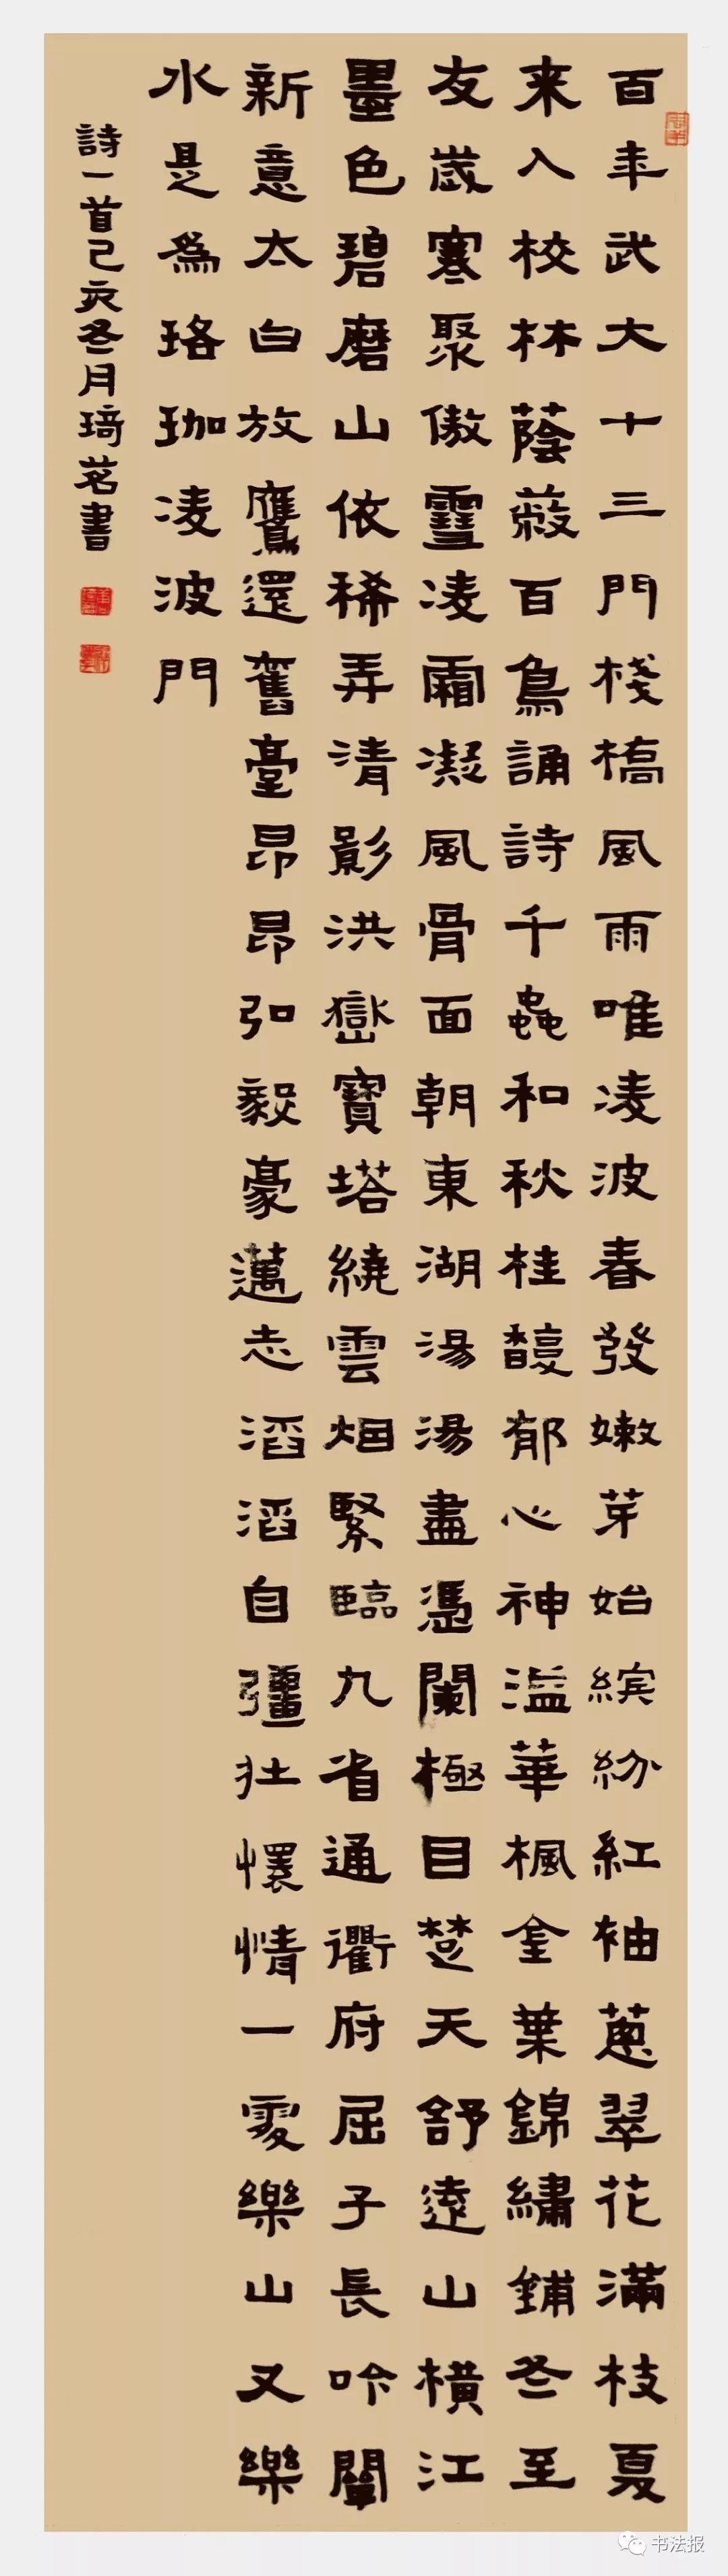 百年武大十三門栈橋風雨唯凌波春發嫩芽始缤紛紅袖蔥翠花滿枝夏
来入校林蔭蔽百鳥誦詩千蟲和秋桂馥郁心神溢華楓金葉錦繡鋪冬至
友歲寒聚傲雪凌霜凝風骨面朝東湖湯湯盡憑闌極目楚天舒遠山橫江
墨色碧磨山依稀弄清影洪嶽寶塔繞雲烟緊臨九省通衢府屈子長吟闡
新意太白放鷹還舊臺昂昂弘毅豪邁志滔滔自彊壯懷情一處樂山又樂
水是為珞珈凌波門
詩一首己亥冬月琦茗書
书法报